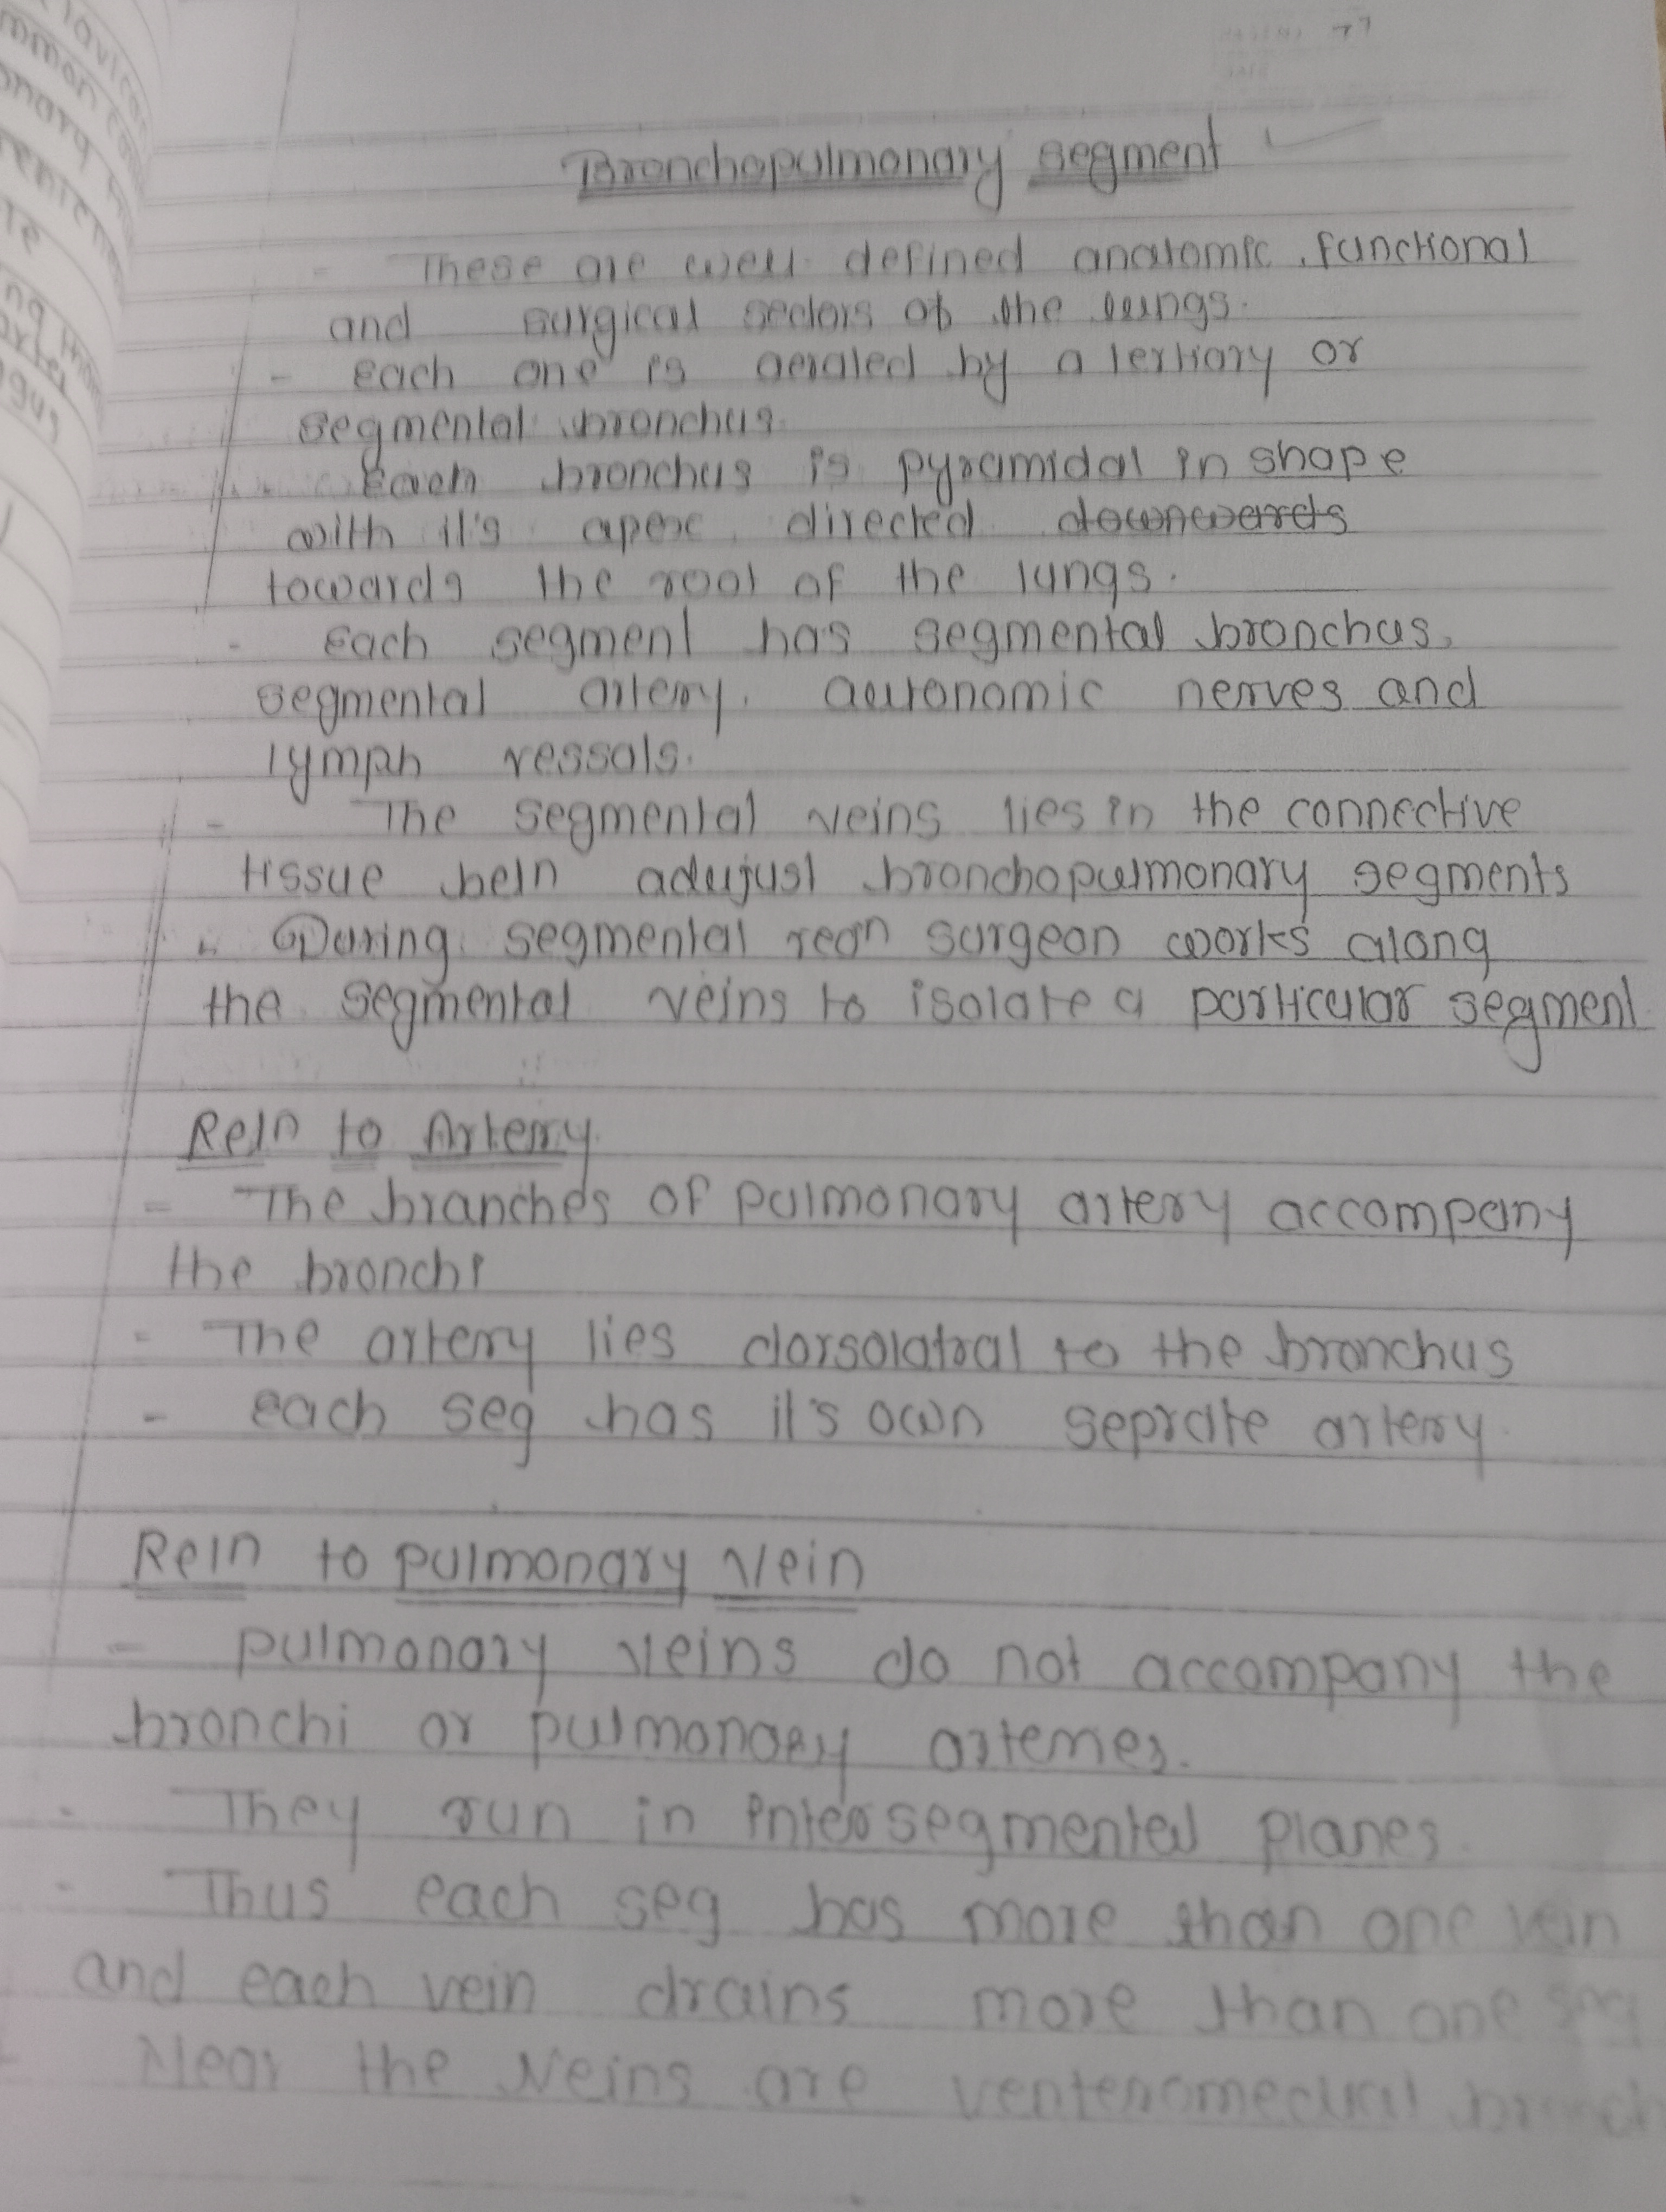 Bronchopulmonary segment
- These are well defined anatomic, functional
and surgical sectors of the lungs.
- Each one is aerated by a tertiary or
segmental bronchus.
Each bronchus is pyramidal in shape
with it's apex directed downwards
towards the root of the lungs.
- Each segment has segmental bronchus,
segmental artery, autonomic nerves and
lymph vessals.
- The segmental veins lies in the connective
tissue beln adujust bronchopulmonary segments
- During segmental resn surgeon works along
the segmental veins to isolate a particular segment
Reln to Artery
- The branches of pulmonary artery accompany
the bronchi
- The artery lies dorsolatral to the bronchus
- each seg has it's own seprate artery.
Reln to pulmonary vein
- pulmonary veins do not accompany the
bronchi or pulmonary arteries.
- They run in intersegmental planes.
- Thus each seg has more than one vein
and each vein drains more than one seg
Near the veins are